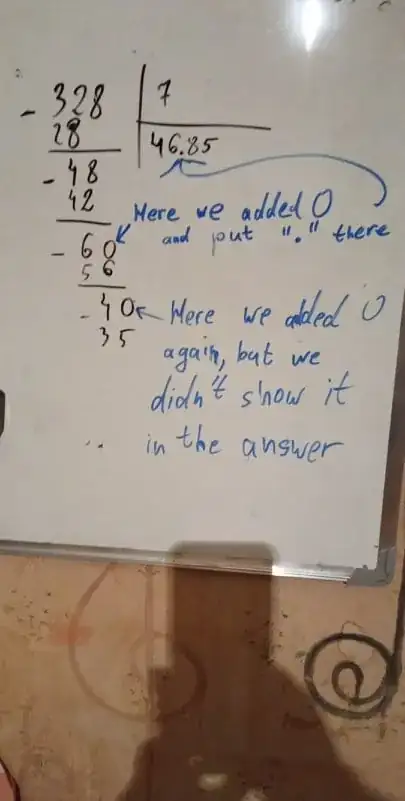 - 328 7
28 46.85
- 48
42
Here we added 0
and put "." there
- 60
56
- 40 Here we added 0
35
again, but we
didn't show it
in the answer